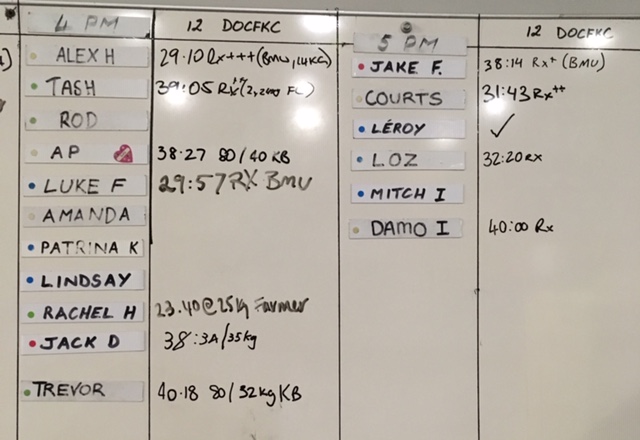 4 PM 12 DOCFKC
ALEX H 29.10 Rx+++ (BMU, 14KG)
TASH 39:05 Rx
ROD
AP 38:27 80/40 KB
LUKE F 29:57 RX BMU
AMANDA
PATRINA K
LINDSAY
RACHEL H 23.40 @ 25kg Farmer
JACK D 38:3A/35kg
TREVOR 40.18 80/32kg KB
5 PM 12 DOCFKC
JAKE F. 38:14 Rx+ (BMU)
COURTS 31:43 Rx++
LÉROY ✓
LOZ 32:20 RX
MITCH I
DAMO I 40:00 Rx